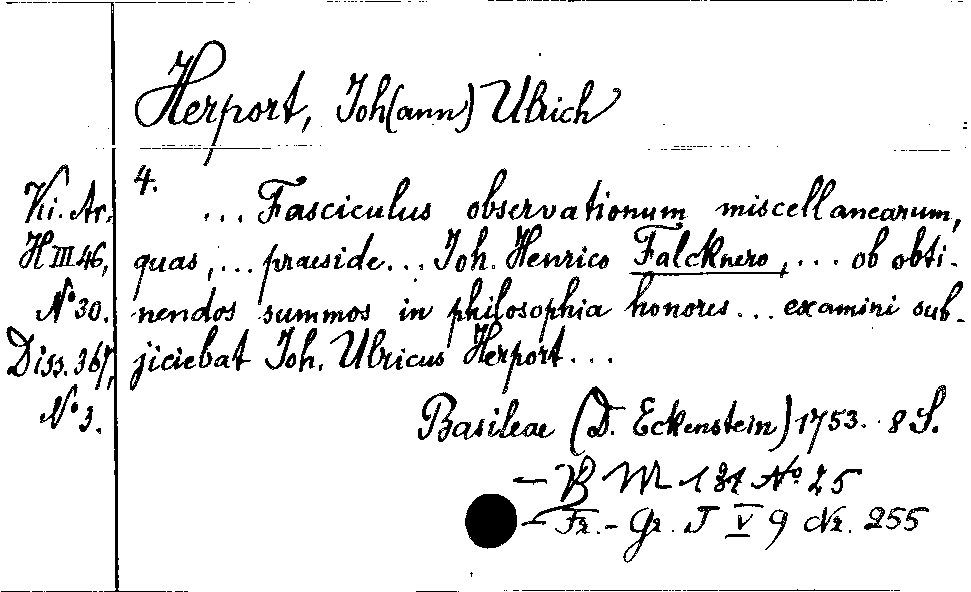 Herport, Joh(ann) Ulrich
4.
Ki. Ar. ... Fasciculus observationum miscellanearum,
H III 46, quas, ... praeside ... Joh. Henrico Falcknero, ... ob obti-
No 30. nendos summos in philosophia honores ... examini sub-
Diss. 367, jiciebat Joh. Ulricus Herport ...
No 3.
Basileae (D. Eckenstein) 1753. 8 S.
— B M 131 No 25
— Fr.- Gr. J V 9 Nr. 255